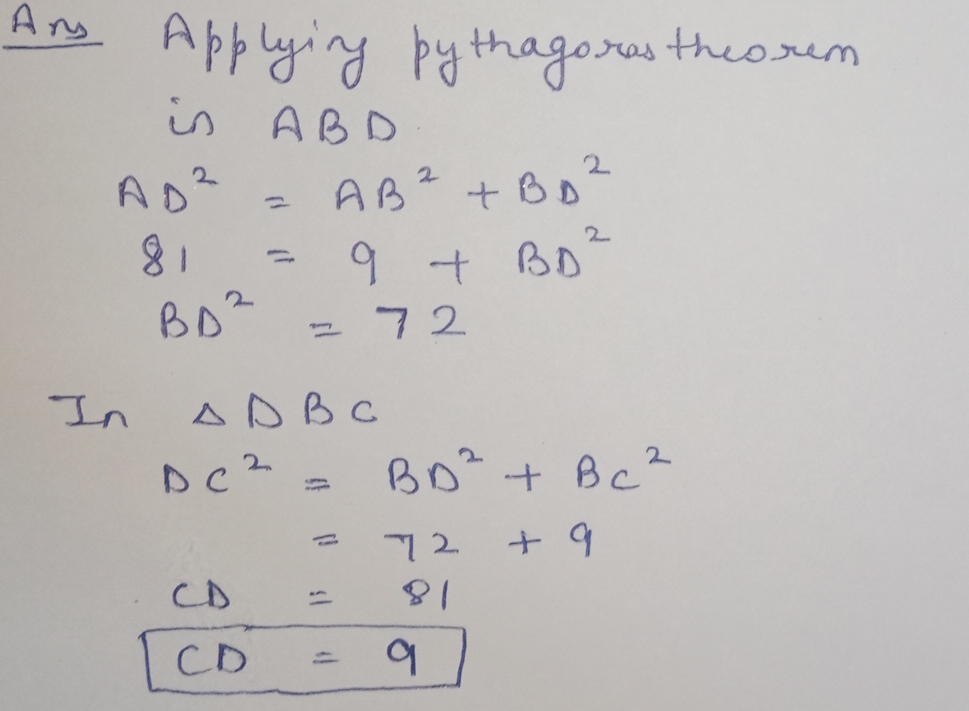 Ans Applying pythagoras theorem
in ABD
AD² = AB² + BD²
81 = 9 + BD²
BD² = 72
In △ DBC
DC² = BD² + BC²
= 72 + 9
CD = 81
CD = 9